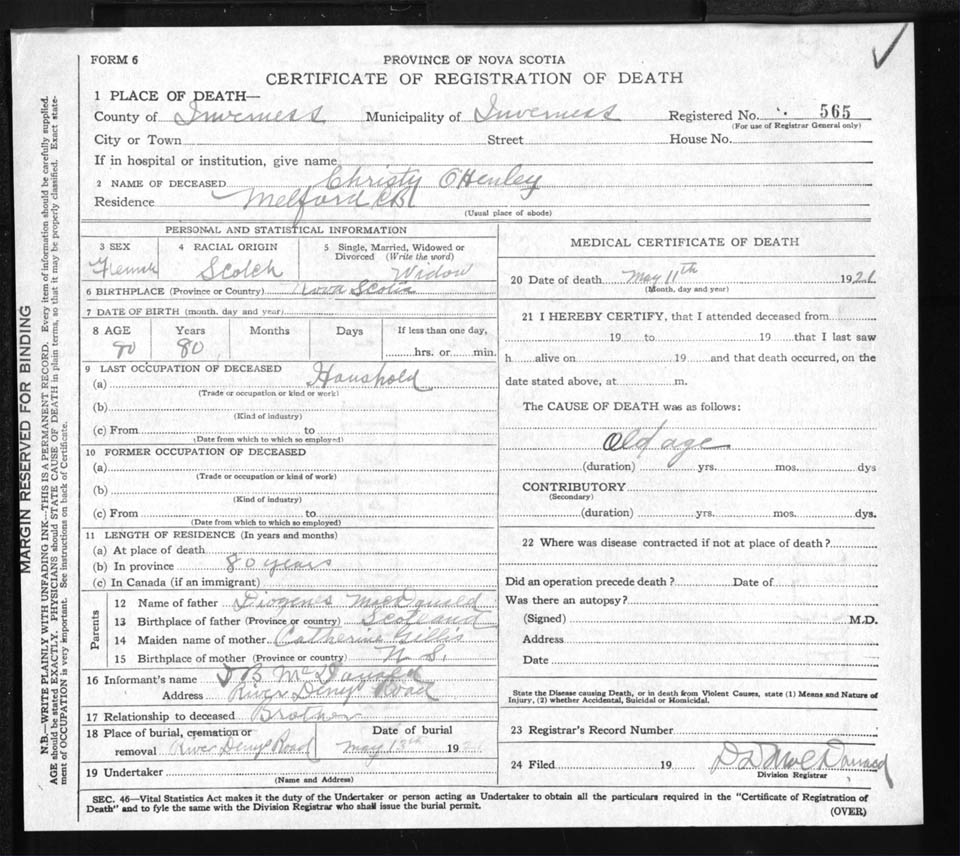 FORM 6
PROVINCE OF NOVA SCOTIA
CERTIFICATE OF REGISTRATION OF DEATH
1 PLACE OF DEATH—
County of Inverness Municipality of Inverness Registered No. 565
(For use of Registrar General only)
City or Town Street House No.
If in hospital or institution, give name
2 NAME OF DECEASED Christy O'Henley
Residence Melford C.B.
(Usual place of abode)
PERSONAL AND STATISTICAL INFORMATION
3 SEX 4 RACIAL ORIGIN 5 Single, Married, Widowed or Divorced (Write the word)
Female Scotch Widow
6 BIRTHPLACE (Province or Country) Nova Scotia
7 DATE OF BIRTH (month, day and year)
8 AGE Years Months Days If less than one day,
80 80 hrs. or min.
9 LAST OCCUPATION OF DECEASED
(a) Houshold
(Trade or occupation or kind or work)
(b)
(Kind of industry)
(c) From to
(Date from which to which so employed)
10 FORMER OCCUPATION OF DECEASED
(a)
(Trade or occupation or kind of work)
(b)
(Kind of industry)
(c) From to
(Date from which to which so employed)
11 LENGTH OF RESIDENCE (In years and months)
(a) At place of death
(b) In province 80 years
(c) In Canada (if an immigrant)
Parents
12 Name of father Diogenes MacDonald
13 Birthplace of father (Province or country) Scotland
14 Maiden name of mother Catherine Gillis
15 Birthplace of mother (Province or country) N. S.
16 Informant's name J B McDonald
Address River Denys Road
17 Relationship to deceased Brother
18 Place of burial, cremation or removal Date of burial
River Denys Road May 13th 1921
19 Undertaker
(Name and Address)
MEDICAL CERTIFICATE OF DEATH
20 Date of death May 11th 1921
(Month, day and year)
21 I HEREBY CERTIFY, that I attended deceased from
19 to 19 that I last saw
h alive on 19 and that death occurred, on the
date stated above, at m.
The CAUSE OF DEATH was as follows:
Old age
(duration) yrs. mos. dys
CONTRIBUTORY
(Secondary)
(duration) yrs. mos. dys.
22 Where was disease contracted if not at place of death?
Did an operation precede death? Date of
Was there an autopsy?
(Signed) M.D.
Address
Date
State the Disease causing Death, or in death from Violent Causes, state (1) Means and Nature of
Injury, (2) whether Accidental, Suicidal or Homicidal.
23 Registrar's Record Number
24 Filed 19 McDonald
Division Registrar
SEC. 46—Vital Statistics Act makes it the duty of the Undertaker or person acting as Undertaker to obtain all the particulars required in the "Certificate of Registration of
Death" and to fyle the same with the Division Registrar who shall issue the burial permit.
(OVER)
MARGIN RESERVED FOR BINDING
N.B.—WRITE PLAINLY WITH UNFADING INK—THIS IS A PERMANENT RECORD. Every item of information should be carefully supplied.
AGE should be stated EXACTLY. PHYSICIANS should STATE CAUSE OF DEATH in plain terms, so that it may be properly classified. Exact statement
of OCCUPATION is very important. See instructions on back of Certificate.